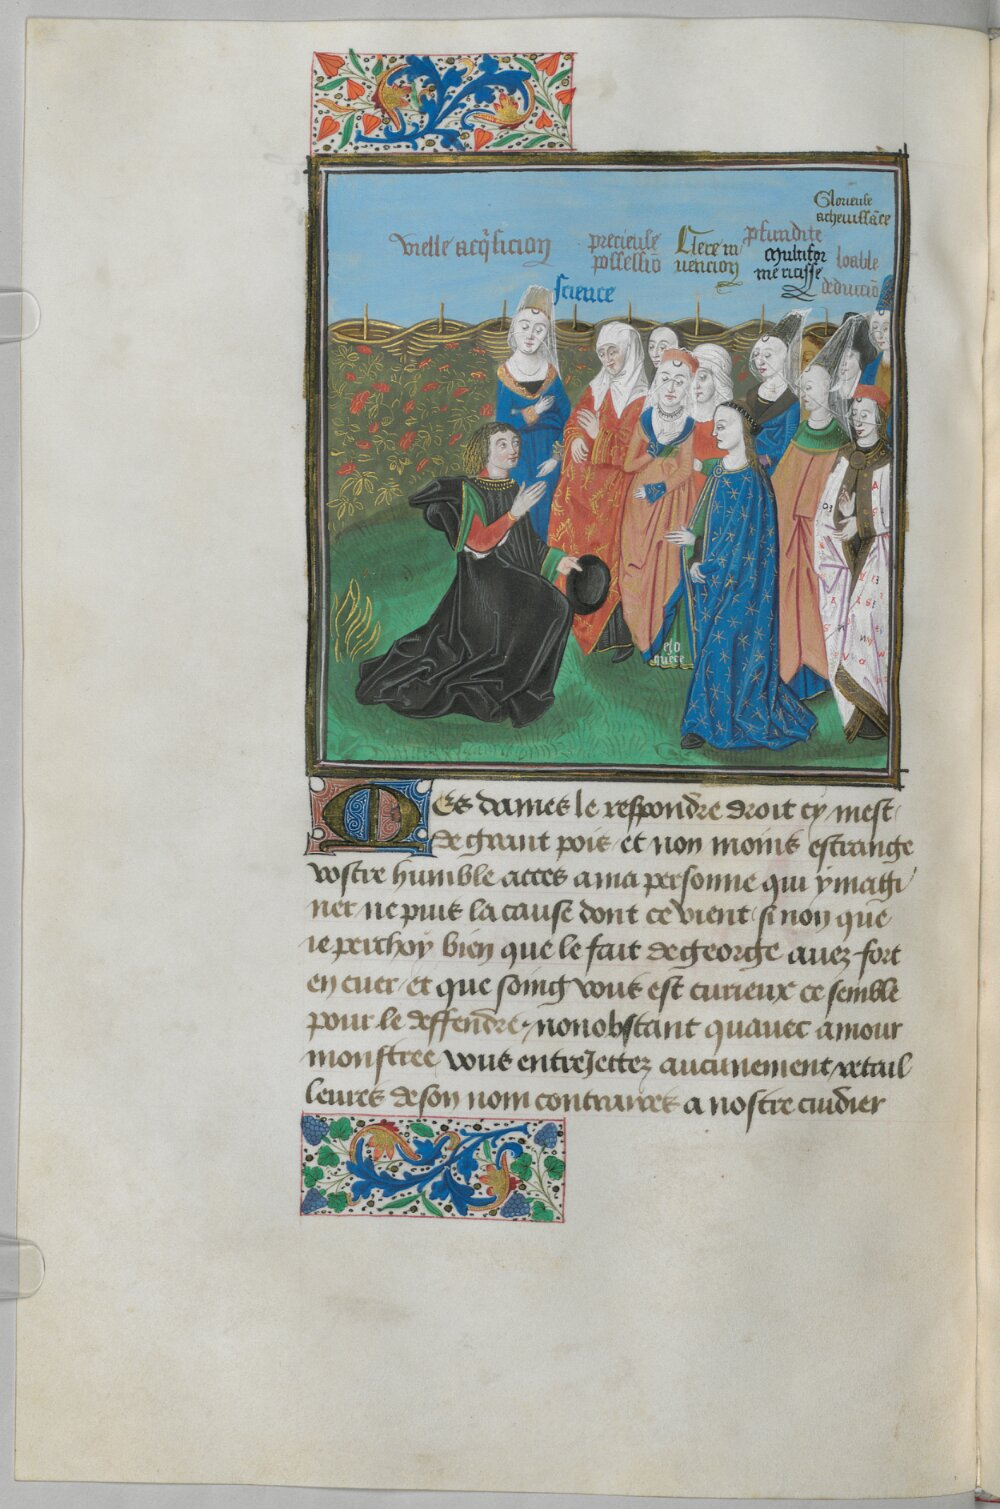 Glorieuse
acheuissāce
vielle acq̄sicion
precieuse
possessiō
Clere in
uencion
pfundite
multifor
me richesse
loable
deduciō
science
elo
quēce
Mes dames le respondre droit cy mest
de grant pois et non moins estrange
vostre humble acces a ma personne qui ymagi
ner ne puis la cause dont ce vient si non que
ie perchoy bien que le fait de george auez fort
en cuer et que soing vous est curieux ce semble
pour le deffendre, nonobstant quauec amour
monstree vous entreJettez aucunement retail
leures de son nom contraires a nostre cuidier